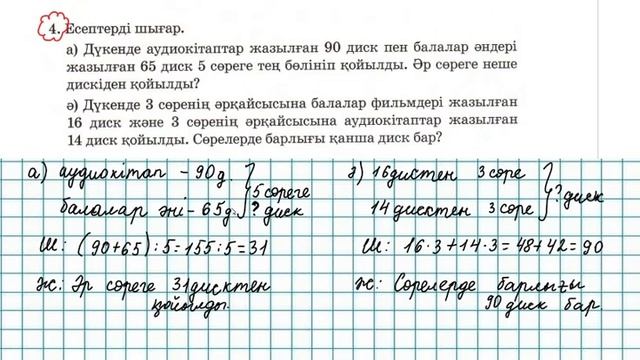 4. Есептерді шығар.
а) Дүкенде аудиокітаптар жазылған 90 диск пен балалар әндері
жазылған 65 диск 5 сөреге тең бөлініп қойылды. Әр сөреге неше
дискіден қойылды?
ә) Дүкенде 3 сөренің әрқайсысына балалар фильмдері жазылған
16 диск және 3 сөренің әрқайсысына аудиокітаптар жазылған
14 диск қойылды. Сөрелерде барлығы қанша диск бар?
а) аудиокітап - 90д.
балалар әні - 65д.
5 сөреге
? диск
Ш: (90+65):5=155:5=31
Ж: Әр сөреге 31 дисктен
қойылды.
ә) 16 дистен 3 сөре
14 дисктен 3 сөре
? диск
Ш: 16·3+14·3=48+42=90
Ж: Сөрелерде барлығы
90 диск бар.